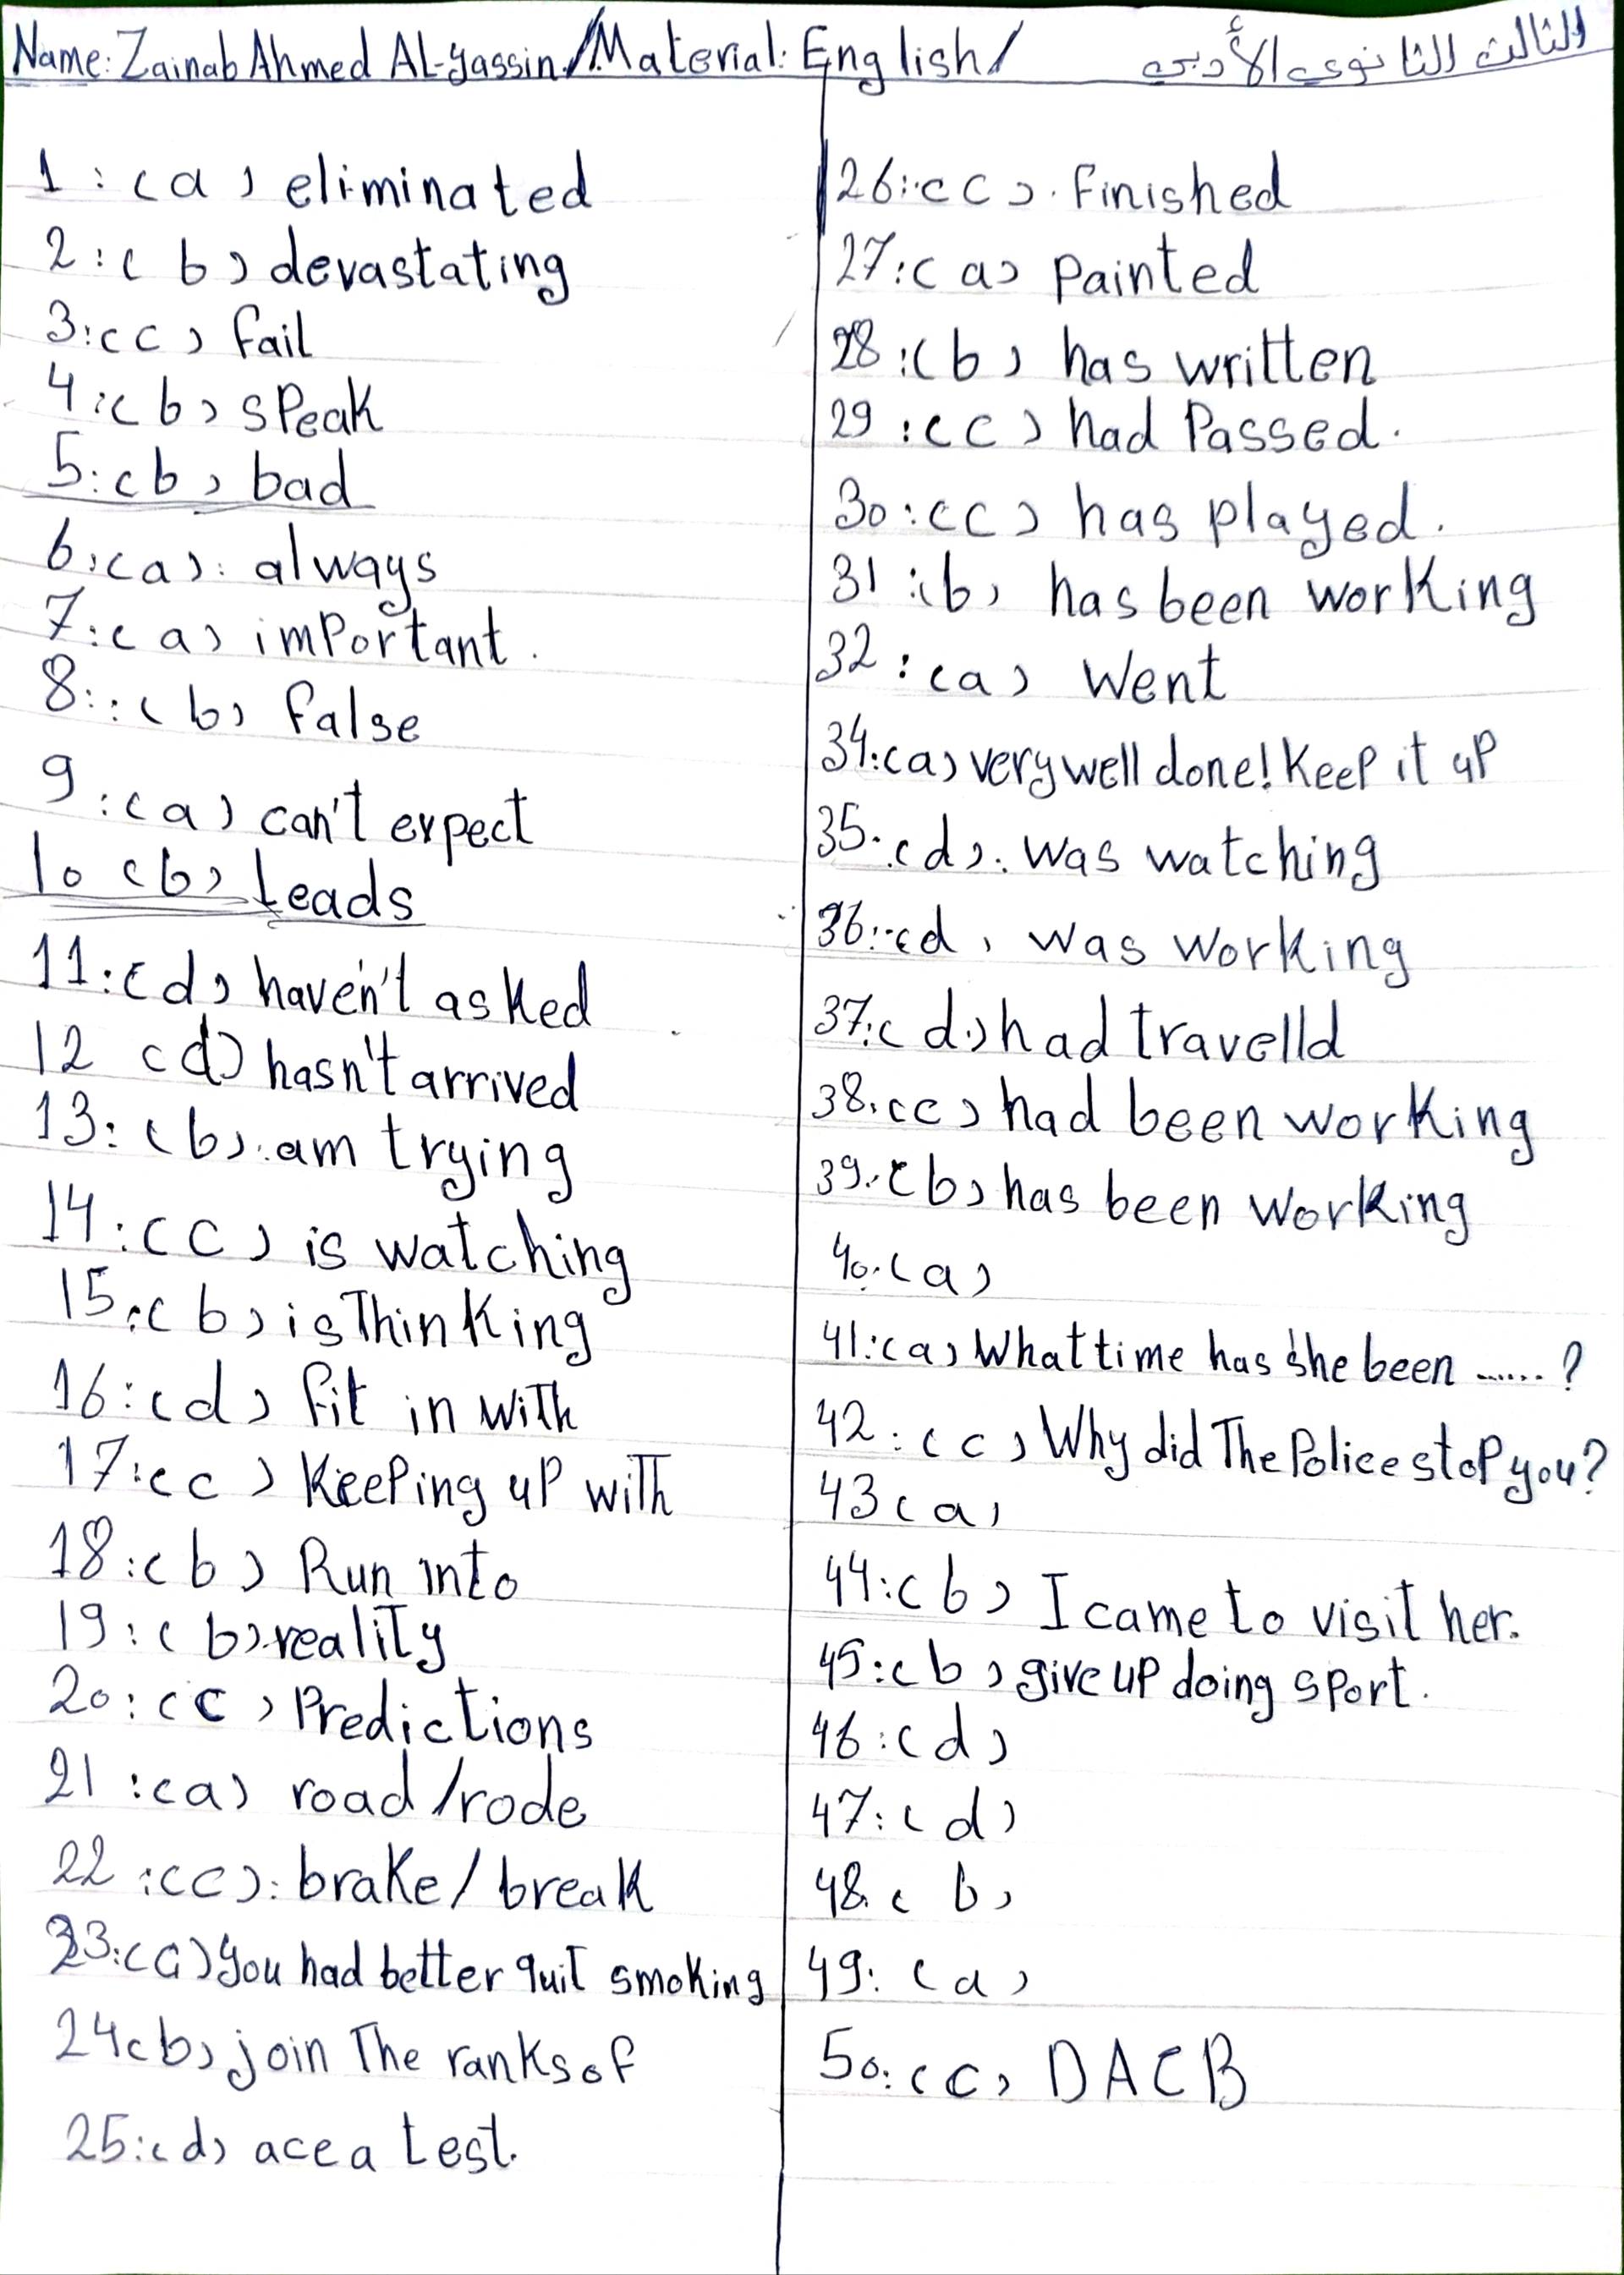 Name: Zainab Ahmed AL-yassin / Material: English / الثالث الثانوي الأدبي
1 : (a) eliminated
2 : (b) devastating
3 : (c) fail
4 : (b) speak
5 : (b) bad
6 : (a) : always
7 : (a) important .
8 : : (b) false
9 : (a) can't expect
10 (b) Leads
11 : (d) haven't asked
12 (d) hasn't arrived
13 : (b) . am trying
14 : (c) is watching
15 : (b) is Thinking
16 : (d) fit in with
17 : (c) Keeping up with
18 : (b) Run into
19 : (b) reality
20 : (c) Predictions
21 : (a) road / rode
22 : (c) : brake / break
23 : (a) you had better quit smoking
24 (b) join The ranks of
25 : (d) ace a test.
26 : (c) . Finished
27 : (a) Painted
28 : (b) has written
29 : (c) had Passed .
30 : (c) has played .
31 : (b) has been working
32 : (a) Went
34 : (a) very well done! Keep it up
35 . (d) : was watching
36 : (d) was working
37 : (d) had travelld
38 . (c) had been working
39 . (b) has been working
40 . (a)
41 : (a) What time has she been ...... ?
42 : (c) Why did The Police stop you?
43 (a)
44 : (b) I came to visit her.
45 : (b) give up doing sport .
46 : (d)
47 : (d)
48 . (b)
49 : (a)
50 : (c) DACB